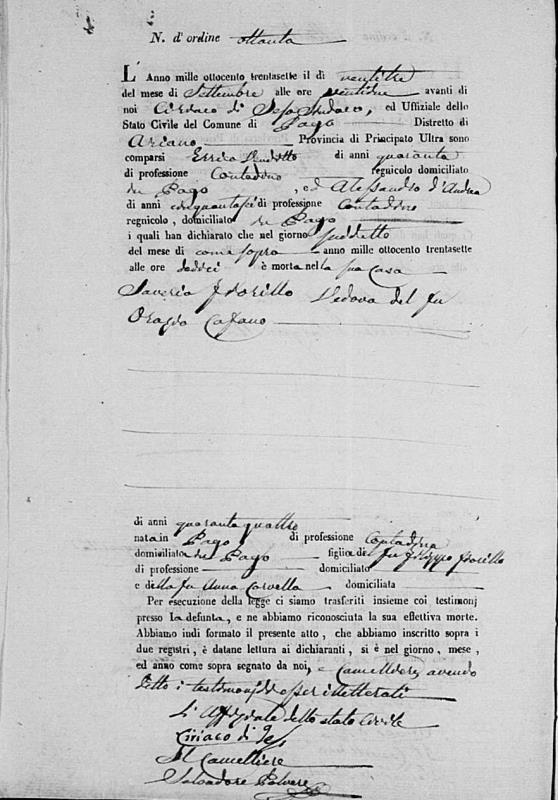 N. d'ordine ottanta
L'Anno mille ottocento trentasette il di ventitre
del mese di Settembre alle ore ventidue avanti di
noi Ciriaco di Jeso Sindaco, ed Uffiziale dello
Stato Civile del Comune di Pago Distretto di
Ariano Provincia di Principato Ultra sono
comparsi Errico di anni quaranta
di professione Contadino regnicolo domiciliato
in Pago, ed Alesandro d'Andrea
di anni cinquantasei di professione Contadino
regnicolo, domiciliato in Pago
i quali han dichiarato che nel giorno suddetto
del mese di come sopra anno mille ottocento trentasette
alle ore dodici è morta nella sua Casa
Saveria Fiorillo Vedova del fu
Orazio Cafano
di anni quaranta quattro
nata in Pago di professione Contadina
domiciliata in Pago figlia del fu Filippo Fiorillo
di professione domiciliato
e della fu Anna Corvella domiciliata
Per esecuzione della legge ci siamo trasferiti insieme coi testimonj
presso la defunta, e ne abbiamo riconosciuta la sua effettiva morte.
Abbiamo indi formato il presente atto, che abbiamo inscritto sopra i
due registri, è datane lettura ai dichiaranti, si è nel giorno, mese,
ed anno come sopra segnato da noi, e Cancelliere avendo
detto i testimonj di esser illetterati
L'Uffiziale dello stato Civile
Ciriaco di Jeso
Il Cancelliere
Salvadore Polvere